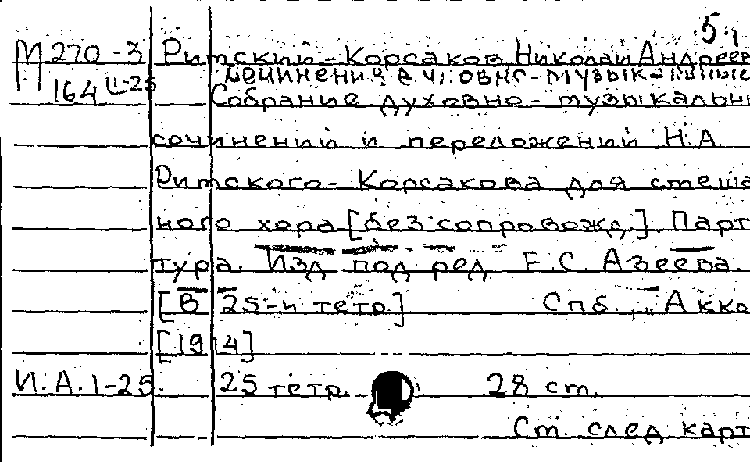 5
М 270-3 Римский-Корсаков Николай Андреев
164 Ц-25 Сочинения духовно-музыкальные
Собрание духовно-музыкальн
сочинений и переложений Н.А.
Римского-Корсакова для смеша
ного хора [без сопровожд.]. Парт
тура. Изд. под ред. Е.С. Азеева.
[В 25-и тетр.] Спб., "Акко
[1914]
И.А.1-25. 25 тетр. 28 cm.
См. след. карт